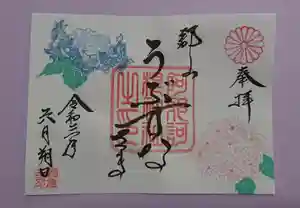 奉拝
郡山
うぶすな
さま
令和三年
六月朔日